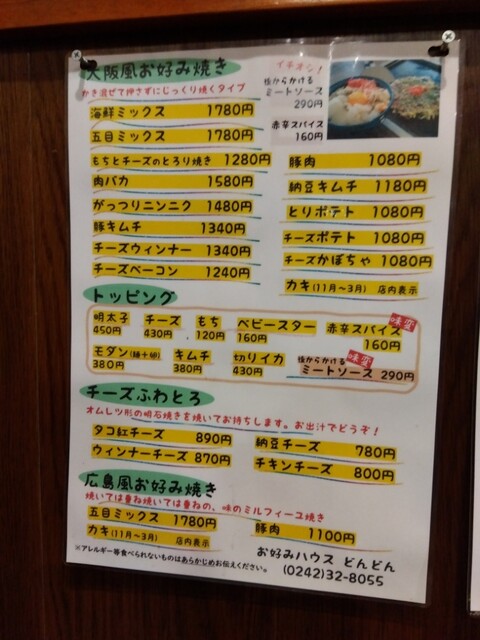 大阪風お好み焼き
かき混ぜて押さずにじっくり焼くタイプ
イチオシ！
後からかける
ミートソース
290円
赤辛スパイス
160円
海鮮ミックス 1780円
五目ミックス 1780円
もちとチーズのとろり焼き 1280円
肉バカ 1580円
がっつりニンニク 1480円
豚キムチ 1340円
チーズウィンナー 1340円
チーズベーコン 1240円
豚肉 1080円
納豆キムチ 1180円
とりポテト 1080円
チーズポテト 1080円
チーズかぼちゃ 1080円
カキ(11月〜3月) 店内表示
トッピング
明太子 チーズ もち ベビースター 赤辛スパイス 味変
450円 430円 120円 160円 160円
モダン(麺+卵) キムチ 切りイカ 後からかける 味変
380円 380円 430円 ミートソース 290円
チーズふわとろ
オムレツ形の明石焼きを焼いてお持ちします。お出汁でどうぞ！
タコ紅チーズ 890円
ウィンナーチーズ 870円
納豆チーズ 780円
チキンチーズ 800円
広島風お好み焼き
焼いては重ね焼いては重ねの、味のミルフィーユ焼き
五目ミックス 1780円
豚肉 1100円
カキ(11月〜3月) 店内表示
※アレルギー等食べられないものはあらかじめお伝えください。
お好みハウス どんどん
(0242)32-8055